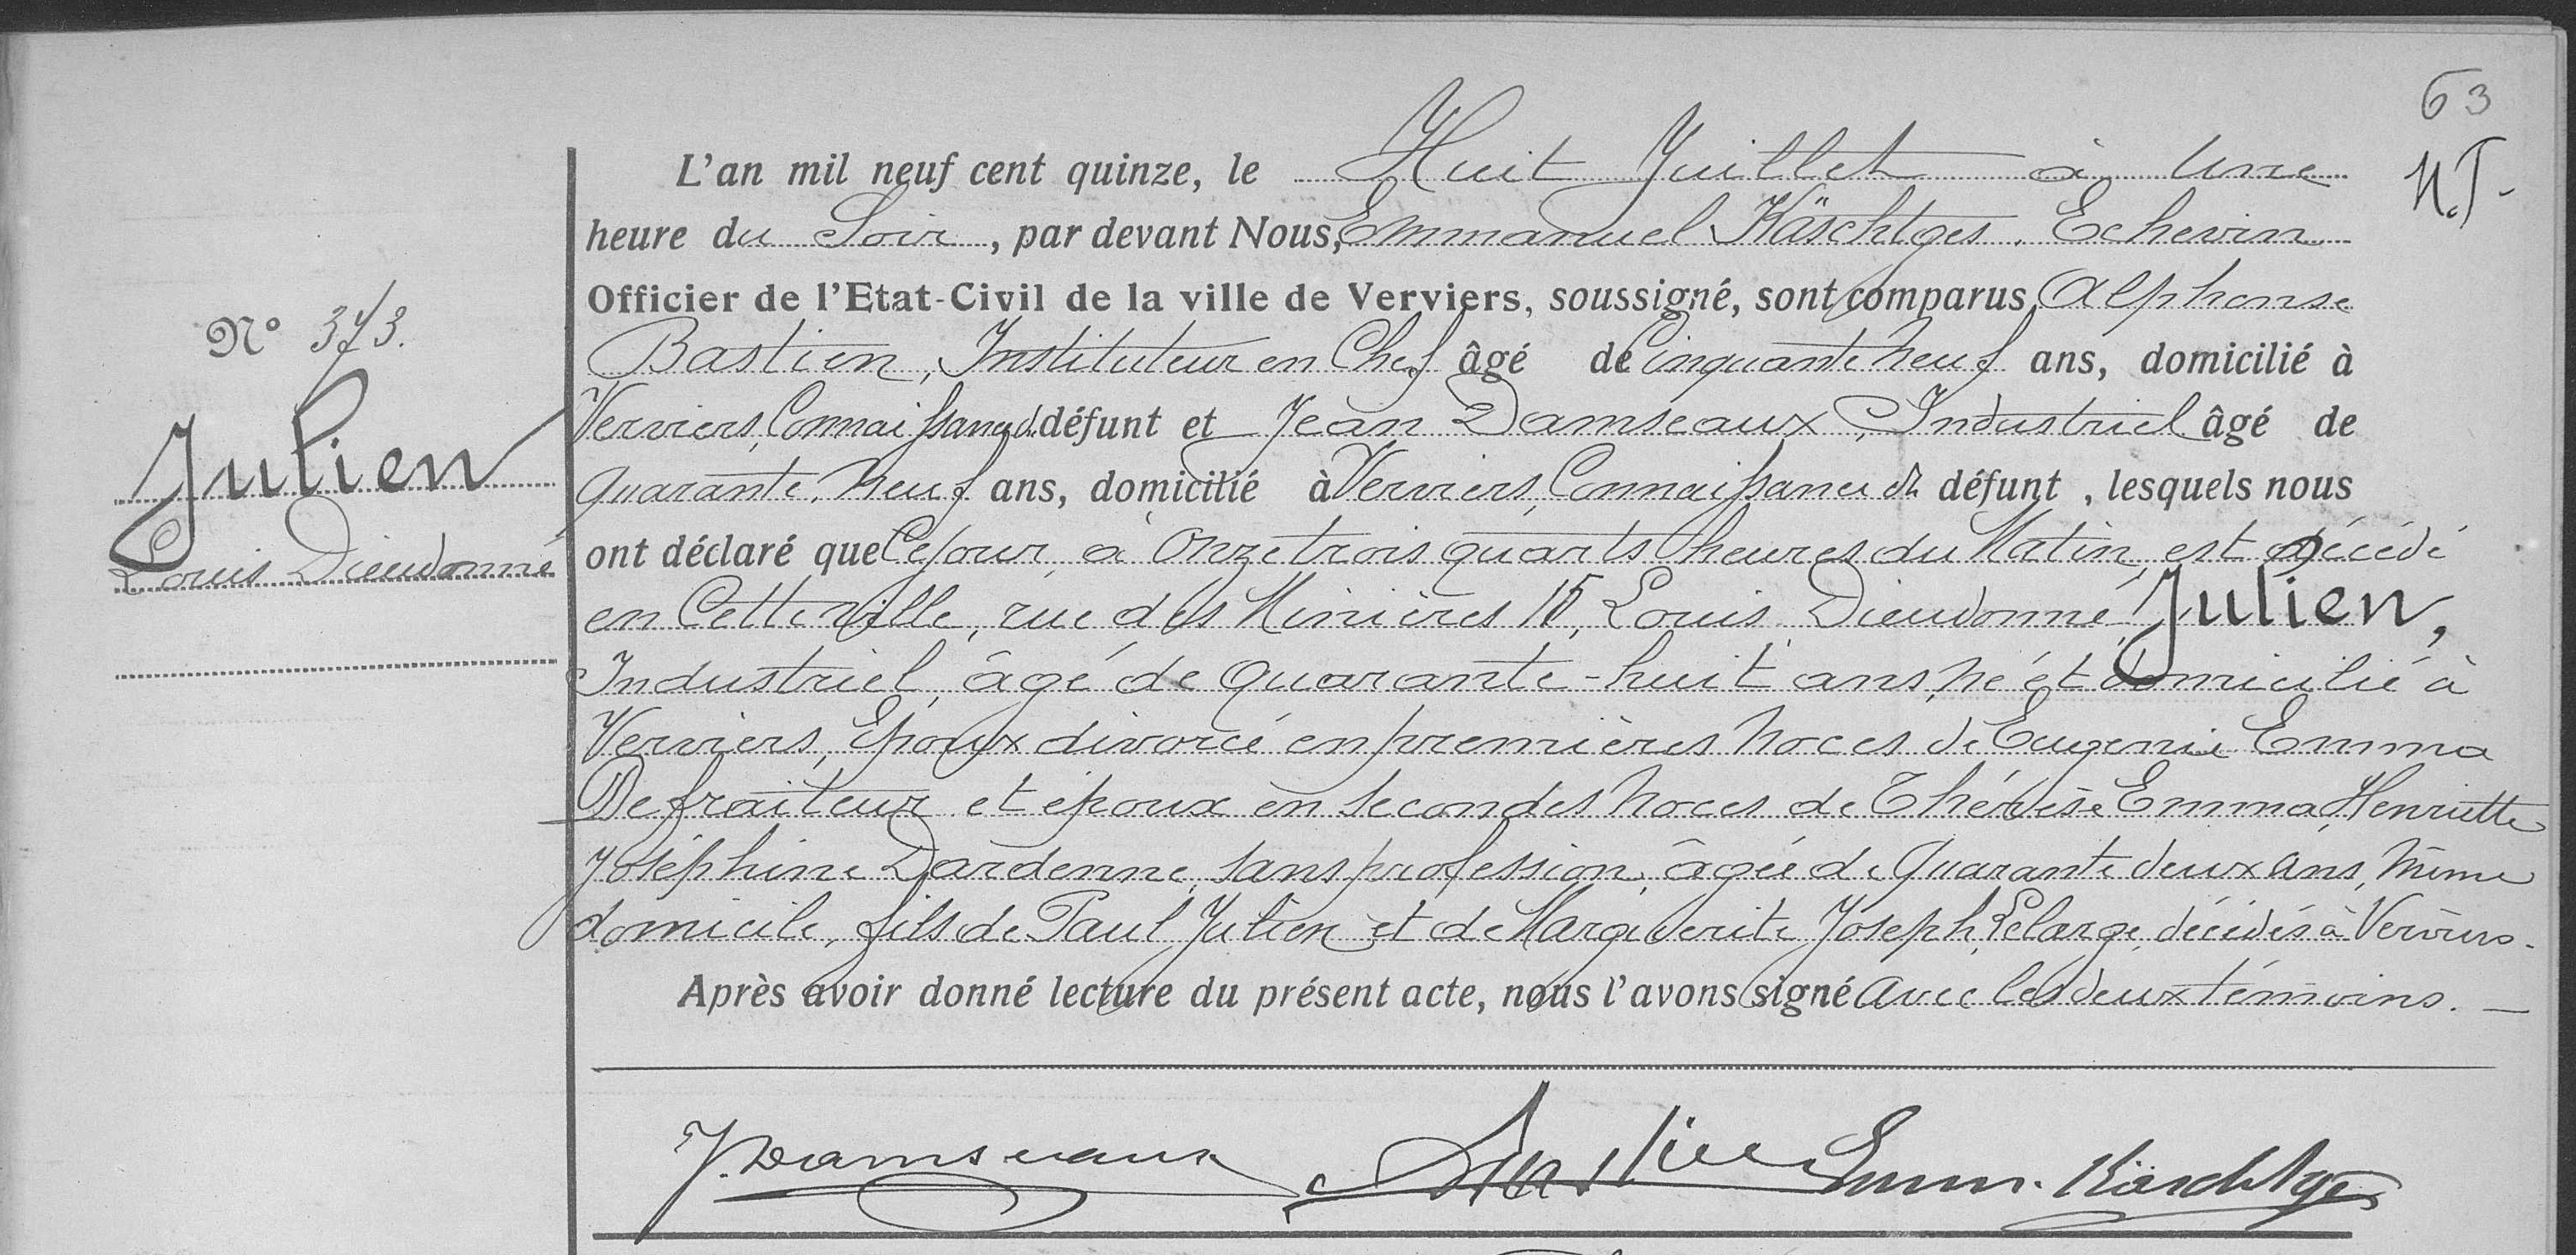 63
N.J.
L'an mil neuf cent quinze, le Huit Juillet à Une
heure du Soir, par devant Nous, Emmanuel Käschtges, Echevin
Officier de l'Etat-Civil de la ville de Verviers, soussigné, sont comparus, Alphonse
Bastien, Instituteur en Chef âgé de Cinquante neuf ans, domicilié à
Verviers, Connaissance du défunt et Jean Damseaux, Industriel âgé de
quarante neuf ans, domicilié à Verviers, Connaissance du défunt, lesquels nous
ont déclaré que Ce jour, à Onze trois quarts heures du Matin, est décédé
en Cette ville, rue des Minières 15, Louis Dieudonné Julien,
Industriel, âgé de quarante-huit ans, né et domicilié à
Verviers, Epoux divorcé en premières noces de Eugenie Emma
Defraiteur et époux en secondes noces de Thérèse Emma Henriette
Joséphine Dardenne, sans profession, âgée de quarante deux ans, même
domicile, fils de Paul Julien et de Marguerite Joseph Lelarge, décédés à Verviers.
Après avoir donné lecture du présent acte, nous l'avons signé avec les deux témoins. —
N° 373.
Julien
Louis Dieudonné
J. Damseaux A Bastien Emm. Käschtges